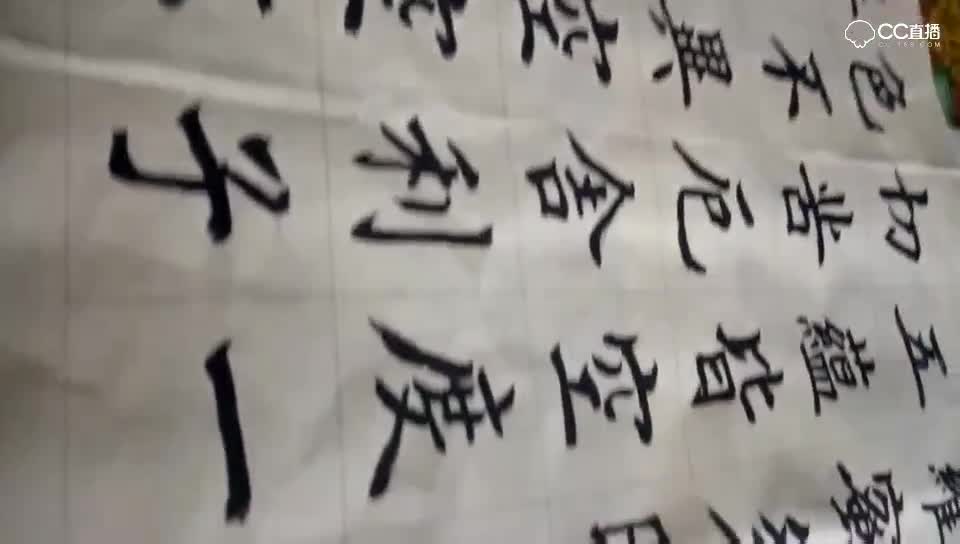 羅蜜
五蘊皆空度一
切苦厄舍利子
色不異空
CC直播
CC.163.COM